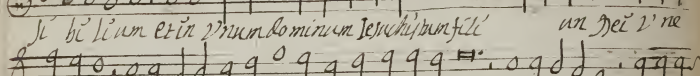 si bi lium et in Vnum dominum Iesu christum fili um Dei V ne